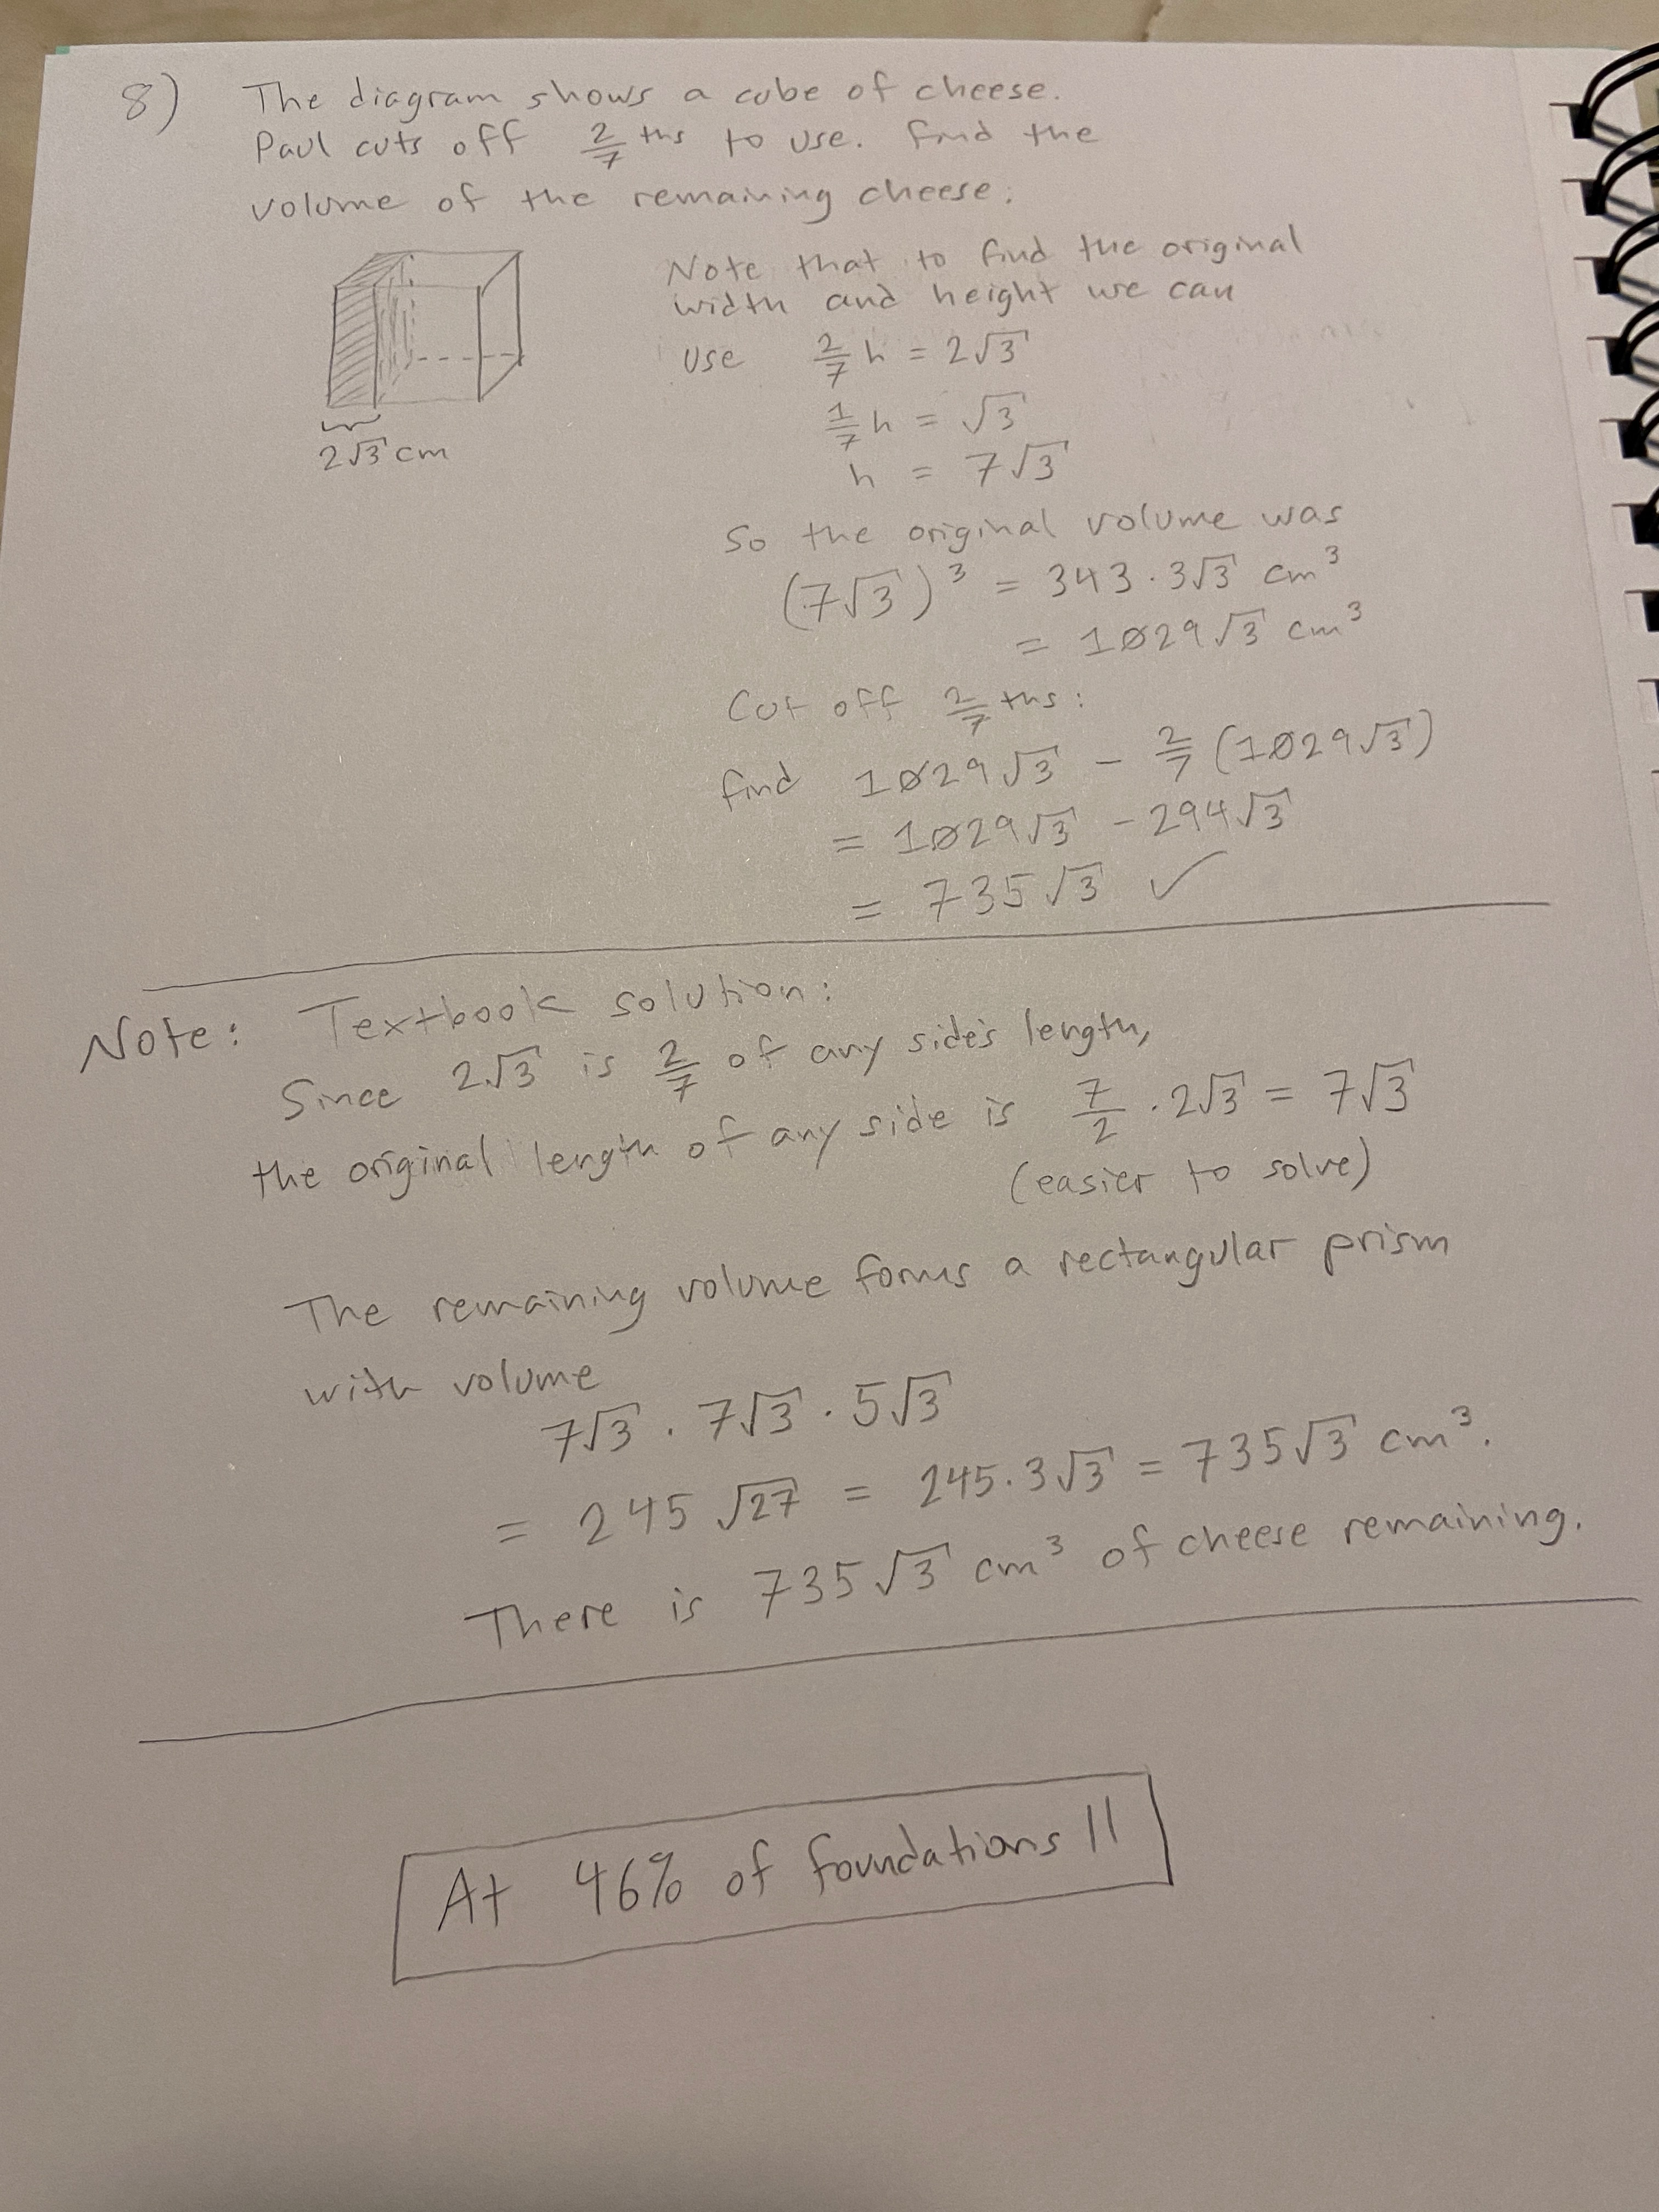 8) The diagram shows a cube of cheese.
Paul cuts off 2/7 ths to use. Find the
volume of the remaining cheese:
2√3 cm
Note that to find the original
width and height we can
use 2/7 h = 2√3
1/7 h = √3
h = 7√3
So the original volume was
(7√3)³ = 343 · 3√3 cm³
= 1029√3 cm³
Cut off 2/7 ths:
find 1029√3 - 2/7 (1029√3)
= 1029√3 - 294√3
= 735√3 ✓
Note: Textbook solution:
Since 2√3 is 2/7 of any side's length,
the original length of any side is 7/2 · 2√3 = 7√3
(easier to solve)
The remaining volume forms a rectangular prism
with volume
7√3 · 7√3 · 5√3
= 245 √27 = 245 · 3√3 = 735√3 cm³.
There is 735√3 cm³ of cheese remaining.
At 46% of foundations II